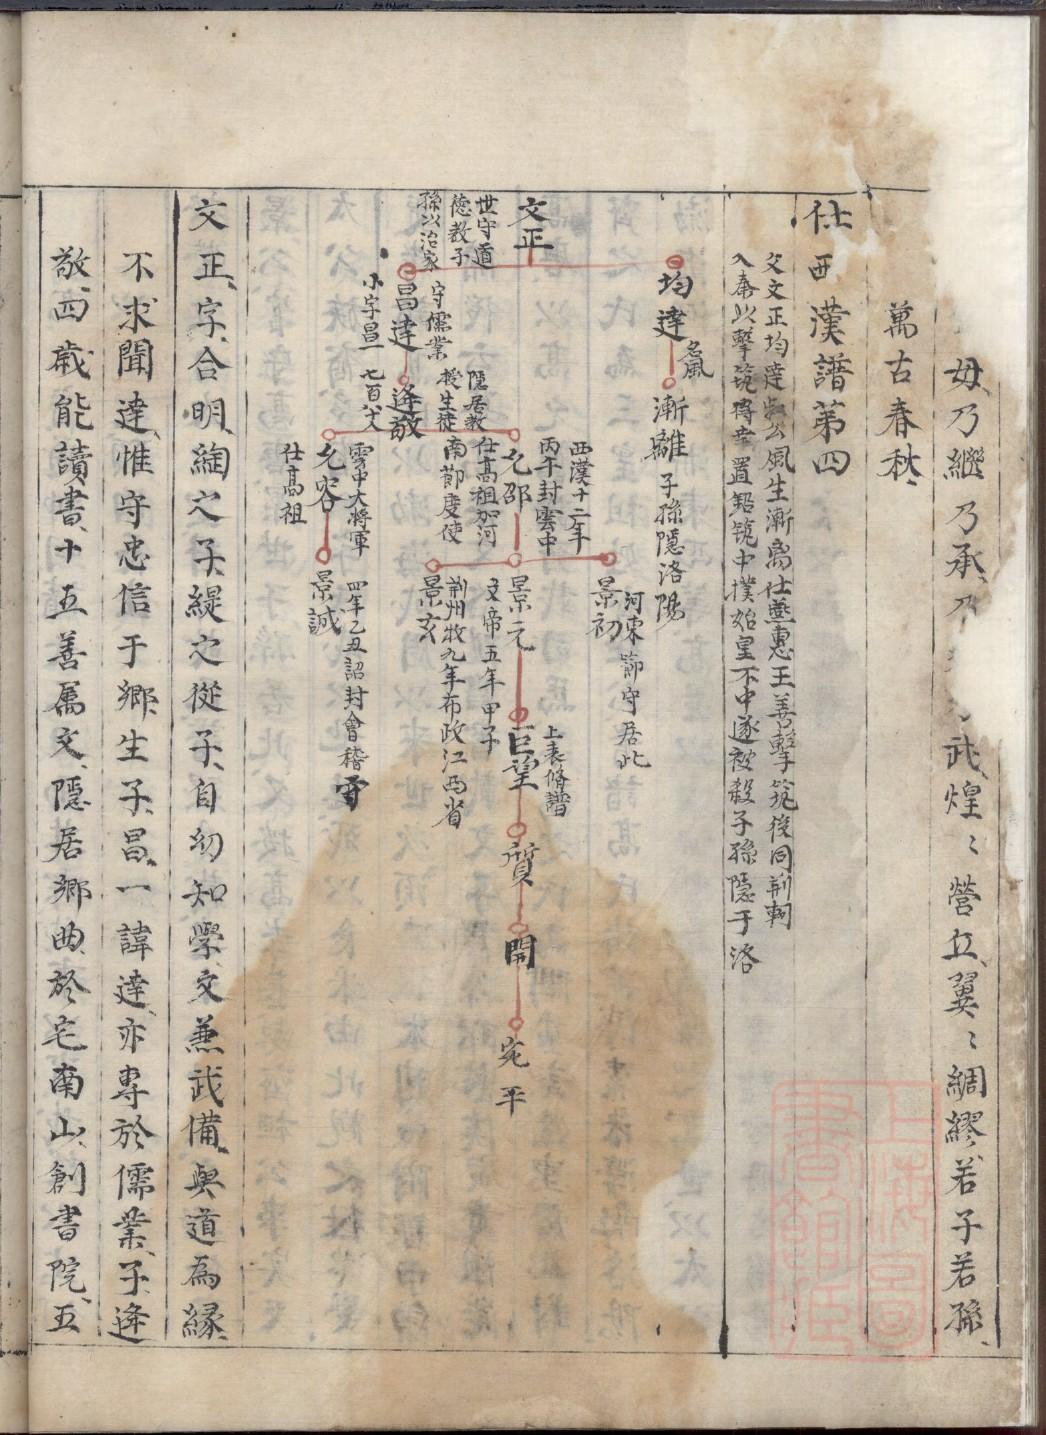 毋乃繼乃承乃
武煌〻營立翼〻綢繆若子若孫
萬古春秋
仕西漢譜第四
父文正均達叔公風生漸离仕燕惠王善擊筑後同荊軻
入秦以擊筑得幸置鉛筑中撲始皇不中遂被殺子孫隱于洛
均達
名風
漸離
子孫隱洛陽
文正
世守道
德教子
孫以治家
昌達
守儒業
小字昌一
逄敬
隱居教
授生徒
七百廿八
允邵
西漢十二年
丙午封雲中
仕高祖加河
南節度使
允容
雲中大將軍
仕高祖
景初
河東節守居此
景元
文帝五年甲子
景玄
荊州牧九年布政江西省
景誠
四年乙丑詔封會稽
巨望
上表脩譜
質
開
宛平
文正字合明綻之子緹之從子自幼知學文兼武備與道為緣
不求聞達惟守忠信于鄉生子昌一諱達亦專於儒業子逄
敬四歲能讀書十五善屬文隱居鄉曲於宅南山創書院五
上海圖書館藏